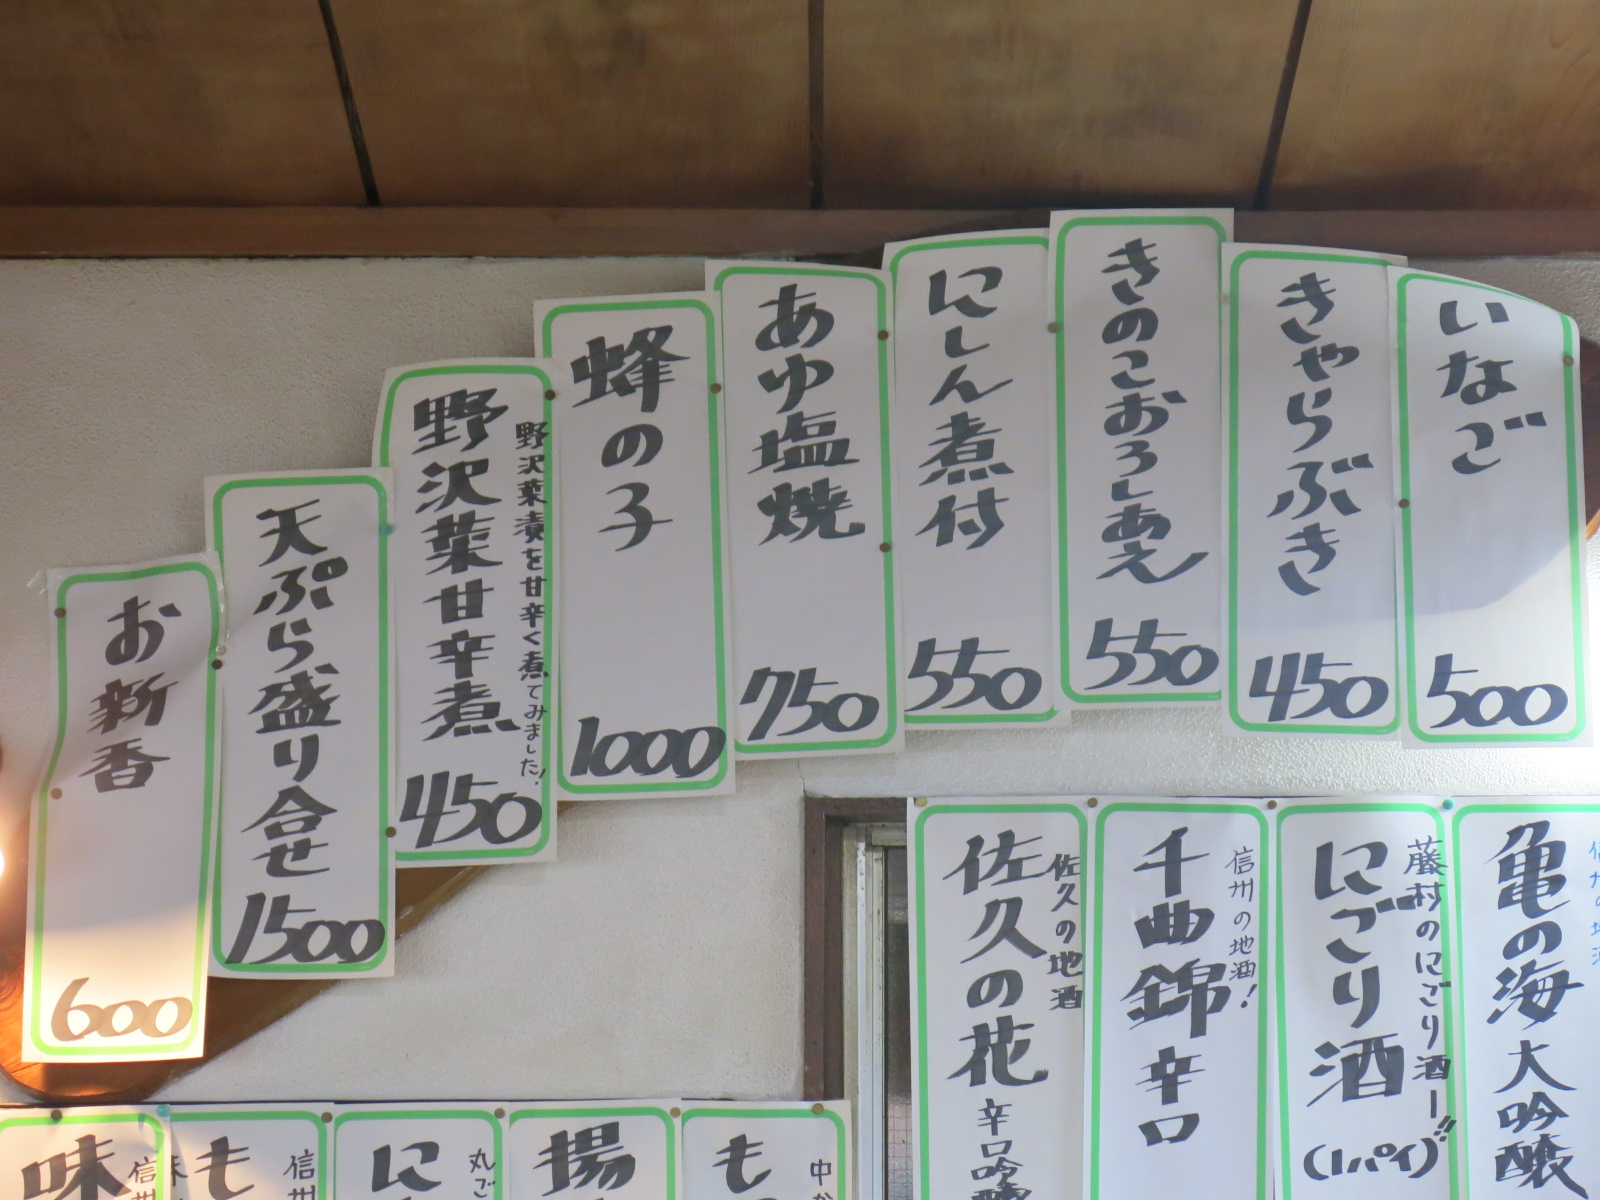 いなご
500
きゃらぶき
450
きのこおろしあえ
550
にしん煮付
550
あゆ塩焼
750
蜂の子
1000
野沢菜漬を甘辛く煮てみました!
野沢菜甘辛煮
450
天ぷら盛り合せ
1500
お新香
600
亀の海 大吟醸
藤村のにごり酒ー!!
にごり酒
(1パイ)
信州の地酒!
千曲錦 辛口
佐久の地酒
佐久の花 辛口吟醸
中か
も
揚
丸ご
に
信州
も
信州
味